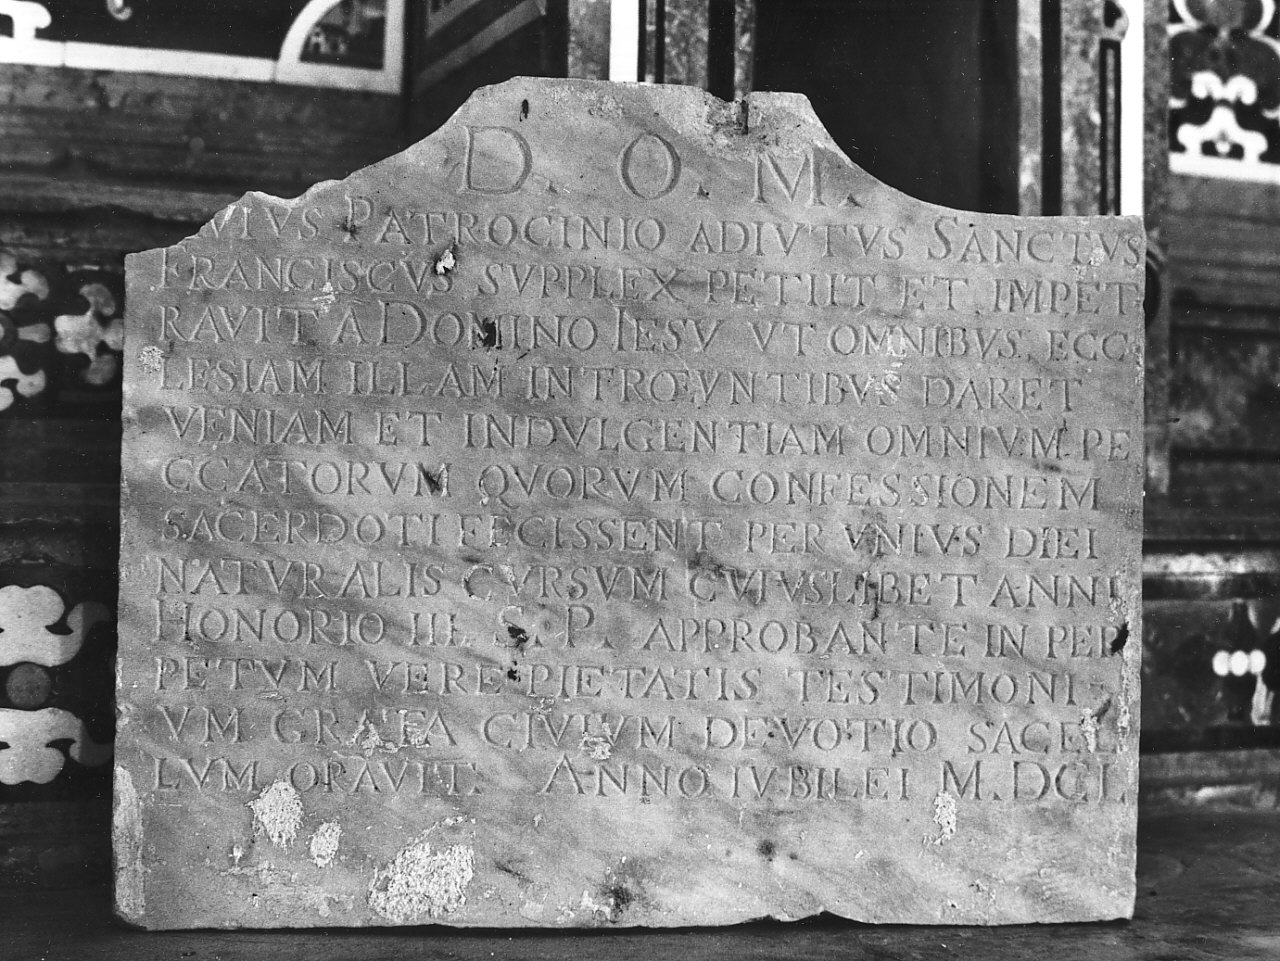 D. O. M.
VIVS PATROCINIO ADIVTVS SANCTVS
FRANCISCVS SVPPLEX PETIIT ET IMPET
RAVIT A DOMINO IESV VT OMNIBVS ECC
LESIAM ILLAM INTROEVNTIBVS DARET
VENIAM ET INDVLGENTIAM OMNIVM PE
CCATORVM QVORVM CONFESSIONEM
SACERDOTI FECISSENT PER VNIVS DIEI
NATVRALIS CVRSVM CVIVSLIBET ANNI
HONORIO III. S. P. APPROBANTE IN PER
PETVM VERE PIETATIS TESTIMONI
VM GRATA CIVIVM DEVOTIO SACEL
LVM ORAVIT. ANNO IVBILEI M.DCL.